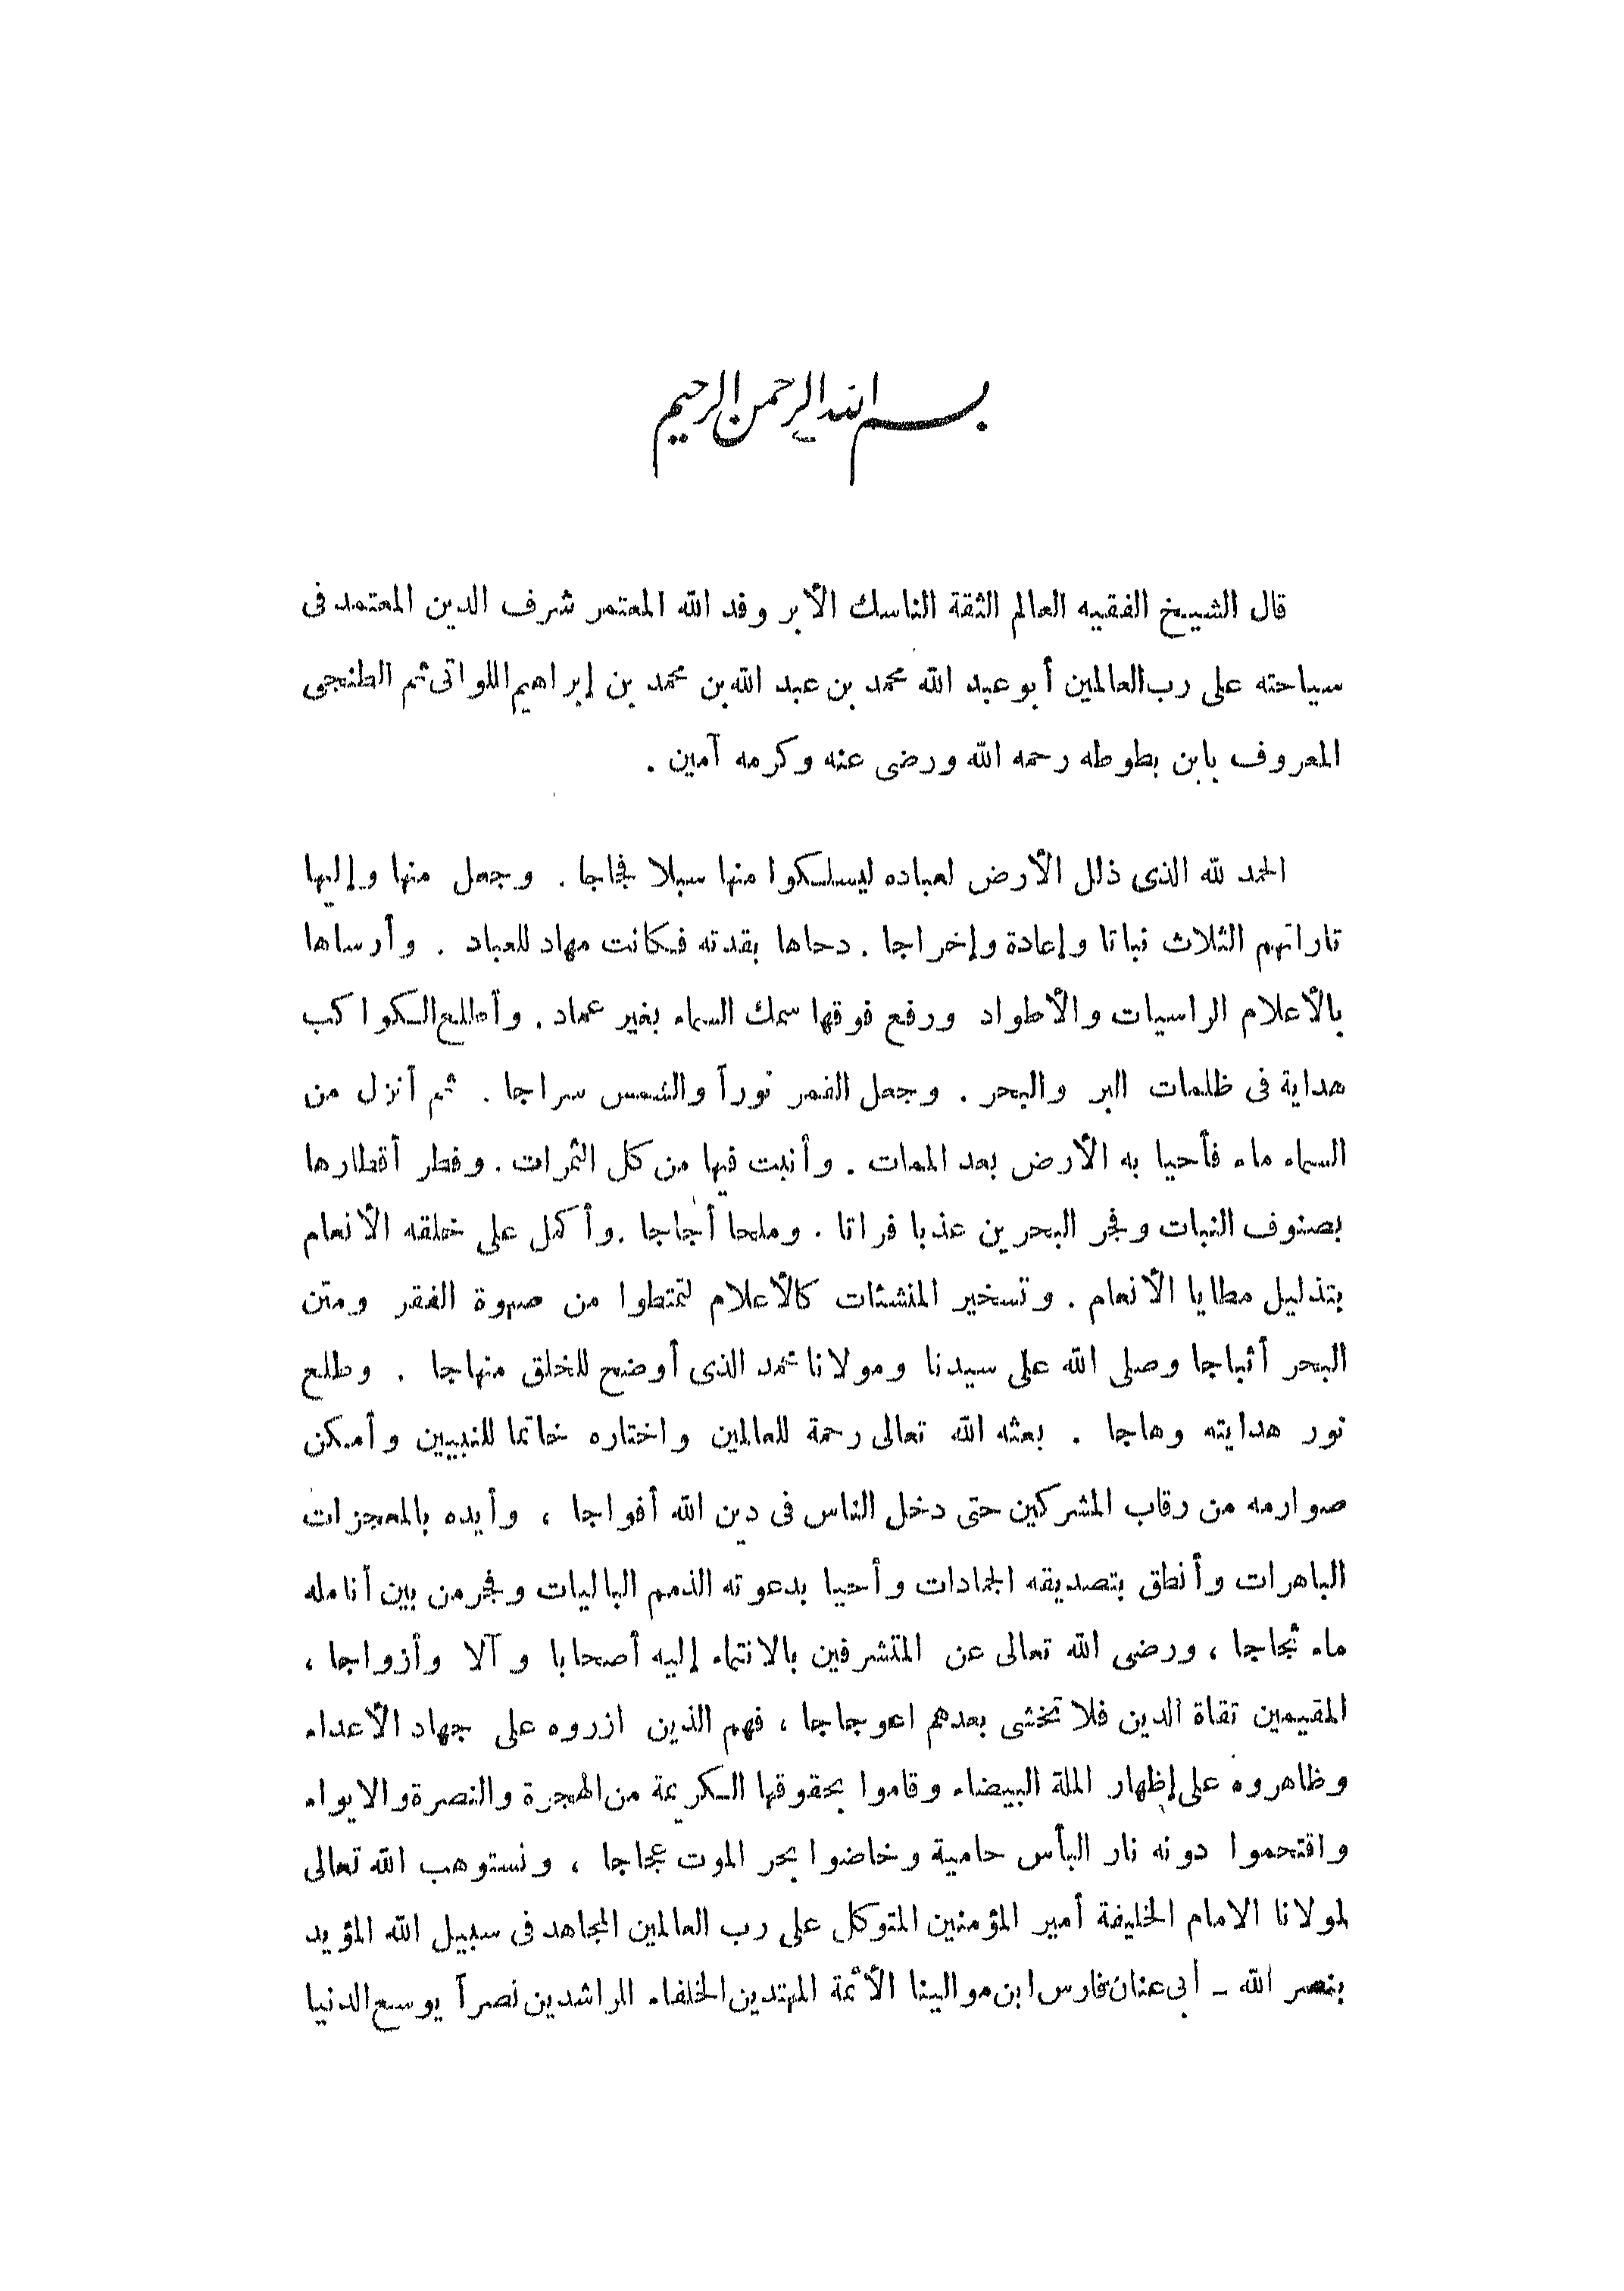 بسم الله الرحمن الرحيم
قال الشيخ الفقيه العالم الثقة الناسك الأبر وفد الله المعتمر شرف الدين المعتمد فى
سياحته على رب العالمين أبو عبد الله محمد بن عبد الله بن محمد بن إبراهيم اللواتى ثم الطنجى
المعروف بابن بطوطه رحمه الله ورضى عنه وكرمه آمين .
الحمد لله الذى ذلل الأرض لعباده ليسلكوا منها سبلا فجاجا . وجعل منها وإليها
تاراتهم الثلاث نباتا وإعادة وإخراجا . دحاها بقدته فكانت مهاد للعباد . وأرساها
بالأعلام الراسيات والأطواد ورفع فوقها سمك السماء بغير عماد . وأطلع الكواكب
هداية فى ظلمات البر والبحر . وجعل القمر نوراً والشمس سراجا . ثم أنزل من
السماء ماء فأحيا به الأرض بعد الممات . وأنبت فيها من كل الثمرات . وفطر أقطارها
بصنوف النبات وفجر البحرين عذبا فراتا . وملحا أجاجا . وأكمل على خلقه الأنعام
بتذليل مطايا الأنعام . وتسخير المنشئات كالأعلام لتمتطوا من صهوة الفقر ومتن
البحر أثباجا وصلى الله على سيدنا ومولانا محمد الذى أوضح للخلق منهاجا . وطلع
نور هدايته وهاجا . بعثه الله تعالى رحمة للعالمين واختاره خاتما للنبيين وأمكن
صوارمه من رقاب المشركين حتى دخل الناس فى دين الله أفواجا ، وأيده بالمعجزات
الباهرات وأنطق بتصديقه الجمادات وأحيا بدعوته الذمم الباليات وفجر من بين أنامله
ماء ثجاجا ، ورضى الله تعالى عن المتشرفين بالانتماء إليه أصحابا وآلا وأزواجا ،
المقيمين تقاة الدين فلا تخشى بعدهم اعوجاجا ، فهم الذين ازروه على جهاد الأعداء
وظاهروه على إظهار الملة البيضاء وقاموا بحقوقها الكريمة من الهجرة والنصرة والايواء
واقتحموا دونه نار البأس حامية وخاضوا بحر الموت عجاجا ، ونستوهب الله تعالى
لمولانا الامام الخليفة أمير المؤمنين المتوكل على رب العالمين المجاهد فى سبيل الله المؤيد
بنصر الله - أبى عنان فارس ابن موالينا الأئمة المهتدين الخلفاء الراشدين نصراً يوسع الدنيا